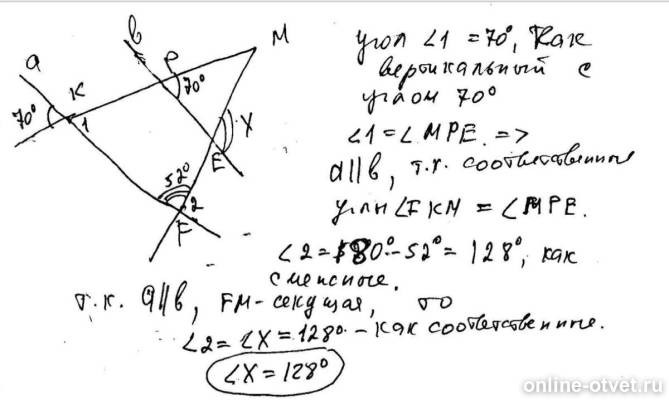 a
b
P
M
K
70°
70°
1
X
E
52°
2
F
угол ∠1 = 70°, как
вертикальный с
углом 70°
∠1 = ∠MPE. =>
a||b, т.к. соответственные
углы ∠FKM = ∠MPE.
∠2 = 180° - 52° = 128°, как
смежные.
т.к. a||b, FM - секущая, то
∠2 = ∠X = 128° - как соответственные.
∠X = 128°
online-otvet.ru